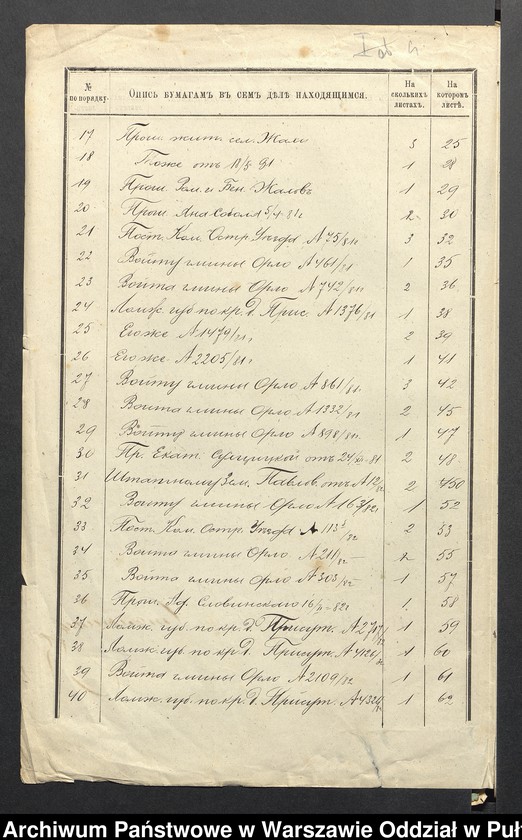 I ob 4
№ по порядку. Опись бумагамъ въ семъ дѣлѣ находящимся. На сколькихъ листахъ. На которомъ листѣ.
17 Прош. жит. сел. Жали 3 25
18 Тоже отъ 81 1 28
19 Прош. и Бен. Жаловъ 1 29
20 Прош. 2 30
21 Пост. Ком. Остр. Уѣзда № 75/81 3 32
22 Войту гмины Орло № 461/81 1 35
23 Войта гмины Орло № 742/81 2 36
24 Ломж. губ. по кр. д. Прис. № 1376/81 1 38
25 Его же № 1479/81 2 39
26 Его же № 2205/81 1 41
27 Войту гмины Орло № 861/81 3 42
28 Войта гмины Орло № 1332/81 2 45
29 Войту гмины Орло № 898/81 1 47
30 Пр. Екат. отъ 24 81 2 48
31 Павлов. отъ № 12/82 2 50
32 Войту гмины Орло № 167/82 1 52
33 Пост. Ком. Остр. Уѣзда № 113/82 2 53
34 Войта гмины Орло № 211/82 2 55
35 Войта гмины Орло № 303/82 1 57
36 Прош. Словинскаго 16 82 1 58
37 Ломж. губ. по кр. д. Присут. № 2787/82 1 59
38 Ломж. губ. по кр. д. Присут. № 4126/82 1 60
39 Войта гмины Орло № 2109/82 1 61
40 Ломж. губ. по кр. д. Присут. № 4324/82 1 62
Archiwum Państwowe w Warszawie Oddział w Puł